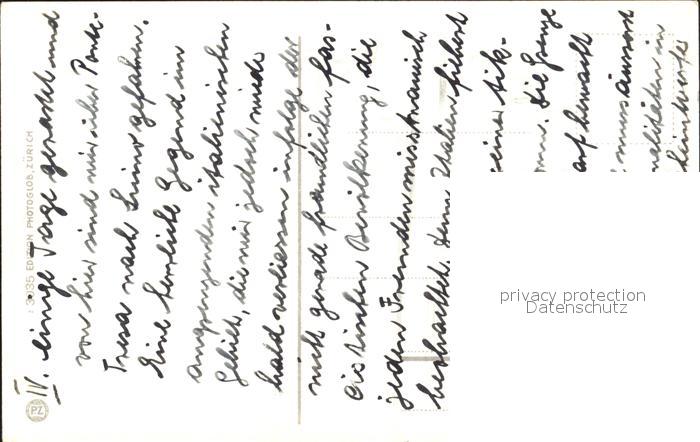 IV. einige Tage gerastet und
von hier sind wir über Ponte-
Tresa nach Luino gefahren.
Eine herrliche Gegend im
angrenzenden italienischen
Gebiet, die wir jedoch wieder
bald verliessen infolge der
nicht gerade freundlichen fas-
cistischen Bevölkerung, die
jeden Fremden misstrauisch
betrachtet. Denn Italien fiebert
seiner
Die Ganze
auf
muss äusserst
in
: 3935 EDITION PHOTOGLOB, ZÜRICH
PZ
privacy protection
Datenschutz